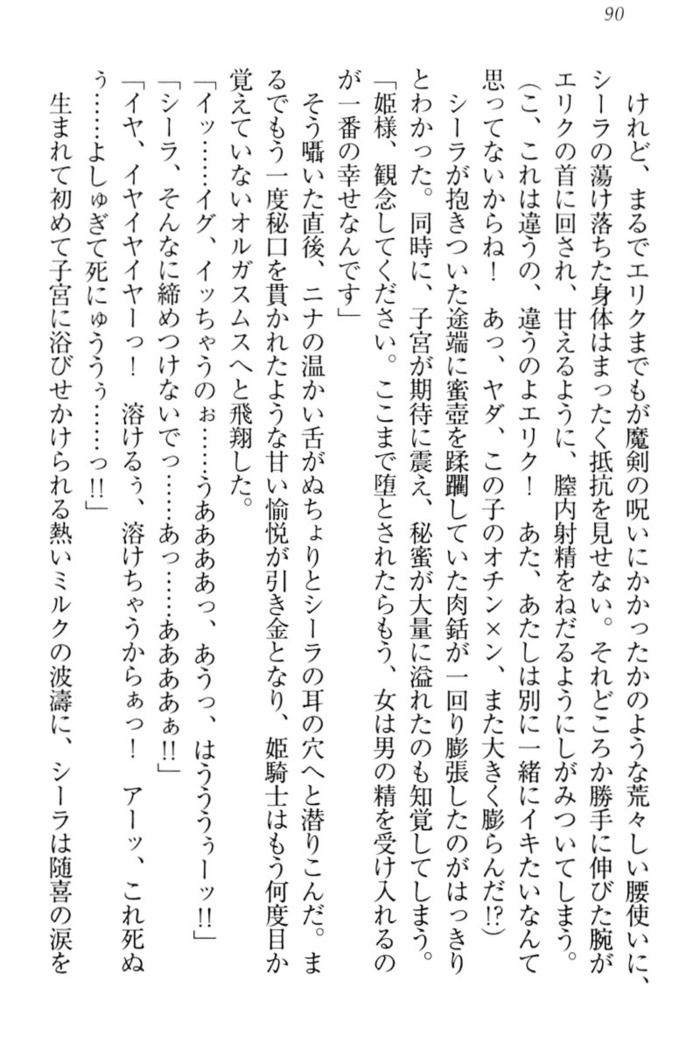 90
けれど、まるでエリクまでもが魔剣の呪いにかかったかのような荒々しい腰使いに、
シーラの蕩け落ちた身体はまったく抵抗を見せない。それどころか勝手に伸びた腕が
エリクの首に回され、甘えるように、膣内射精をねだるようにしがみついてしまう。
(こ、これは違うの、違うのよエリク！　あた、あたしは別に一緒にイキたいなんて
思ってないからね！　あっ、ヤダ、この子のオチン×ン、また大きく膨らんだ!?)
シーラが抱きついた途端に蜜壺を蹂躙していた肉銛が一回り膨張したのがはっきり
とわかった。同時に、子宮が期待に震え、秘蜜が大量に溢れたのも知覚してしまう。
「姫様、観念してください。ここまで堕とされたらもう、女は男の精を受け入れるの
が一番の幸せなんです」
そう囁いた直後、ニナの温かい舌がぬちょりとシーラの耳の穴へと潜りこんだ。ま
るでもう一度秘口を貫かれたような甘い愉悦が引き金となり、姫騎士はもう何度目か
覚えていないオルガスムスへと飛翔した。
「イッ……イグ、イッちゃうのぉ……うああああっ、あうっ、はうううぅーッ!!」
「シーラ、そんなに締めつけないでっ……あっ……ああああぁ!!」
「イヤ、イヤイヤイヤーっ！　溶けるぅ、溶けちゃうからぁっ！　アーッ、これ死ぬ
ぅ……よしゅぎて死にゅううぅぅ……っ!!」
生まれて初めて子宮に浴びせかけられる熱いミルクの波濤に、シーラは随喜の涙を